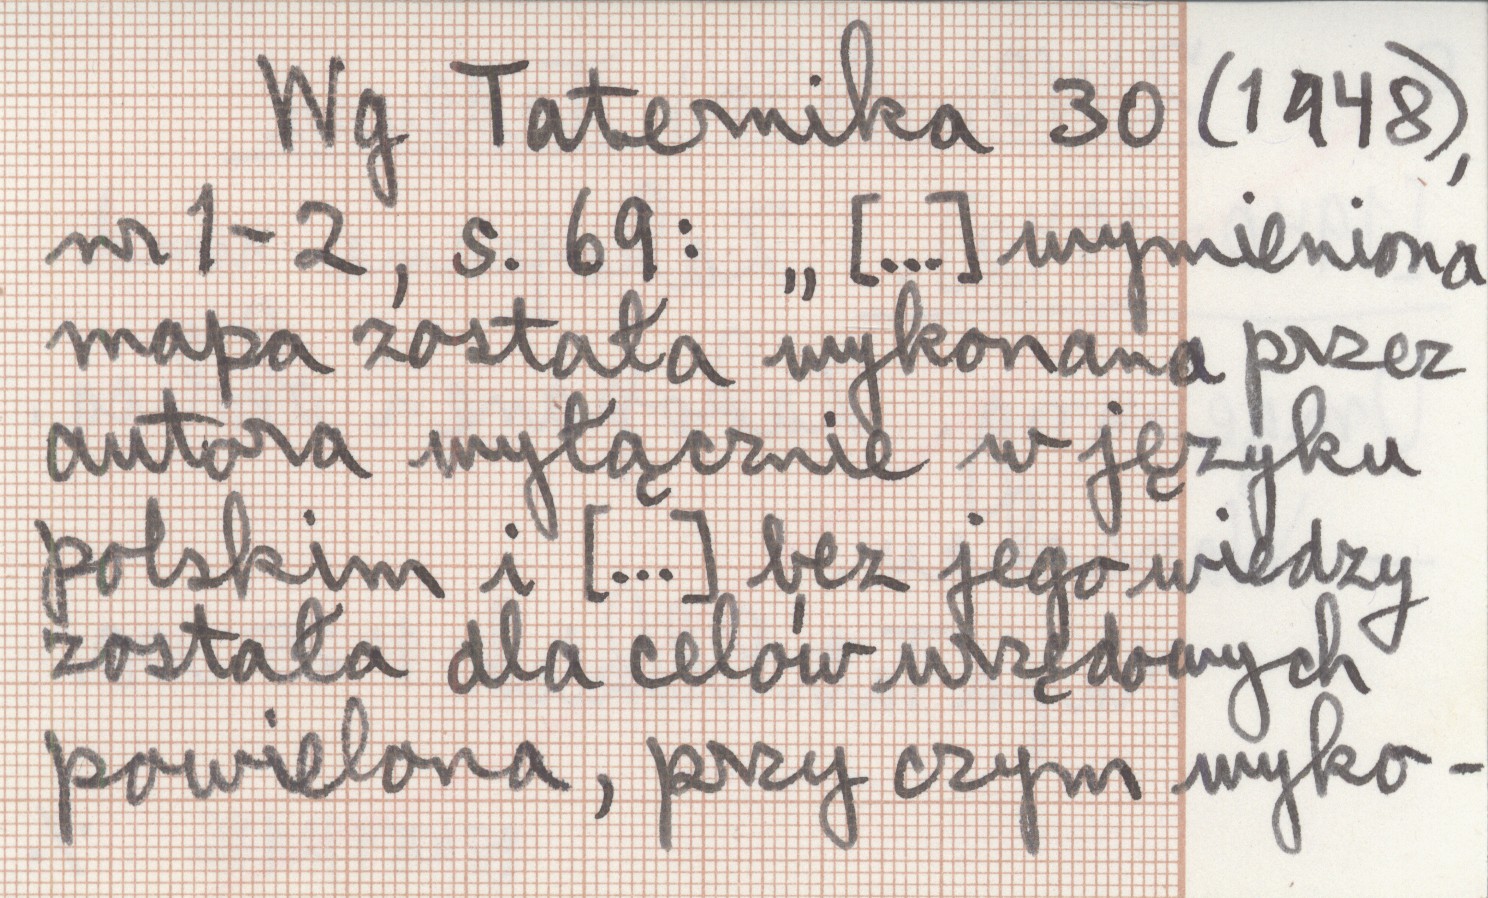 Wg Taternika 30 (1948),
nr 1-2, s. 69: „[...] wymieniona
mapa została wykonana przez
autora wyłącznie w języku
polskim i [...] bez jego wiedzy
została dla celów urzędowych
powielona, przy czym wyko-